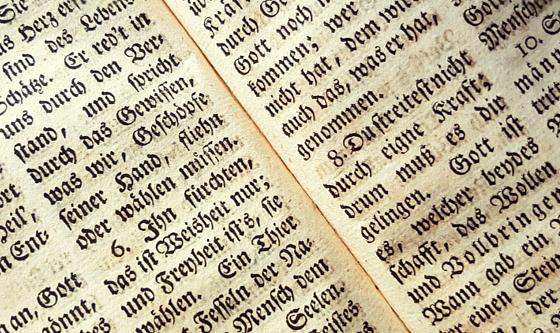 Sie
das Herz erf
sind des Lebens
Schätze. Er red't in
uns durch den Ver-
stand, und spricht
durch das Gewissen,
was wir, Geschöpfe
seiner Hand, fliehn
oder wählen müssen.
6. Ihn fürchten,
das ist Weisheit nur;
und Freyheit ist's, sie
wählen. Ein Thier
Fesseln der Na-
Mensch dem
Seelen.
an, Gott
durch G
Gott noch
kommen; wer
nicht hat, dem wir
auch das, was er hat,
genommen.
8. Du streitest nicht
durch eigne Kraft;
drum muß es dir
gelingen. Gott ist
es, welcher beydes
schafft, das Wollen
und Vollbringen
Wann gab ein
einen Stein
Gott
Menschen
10.